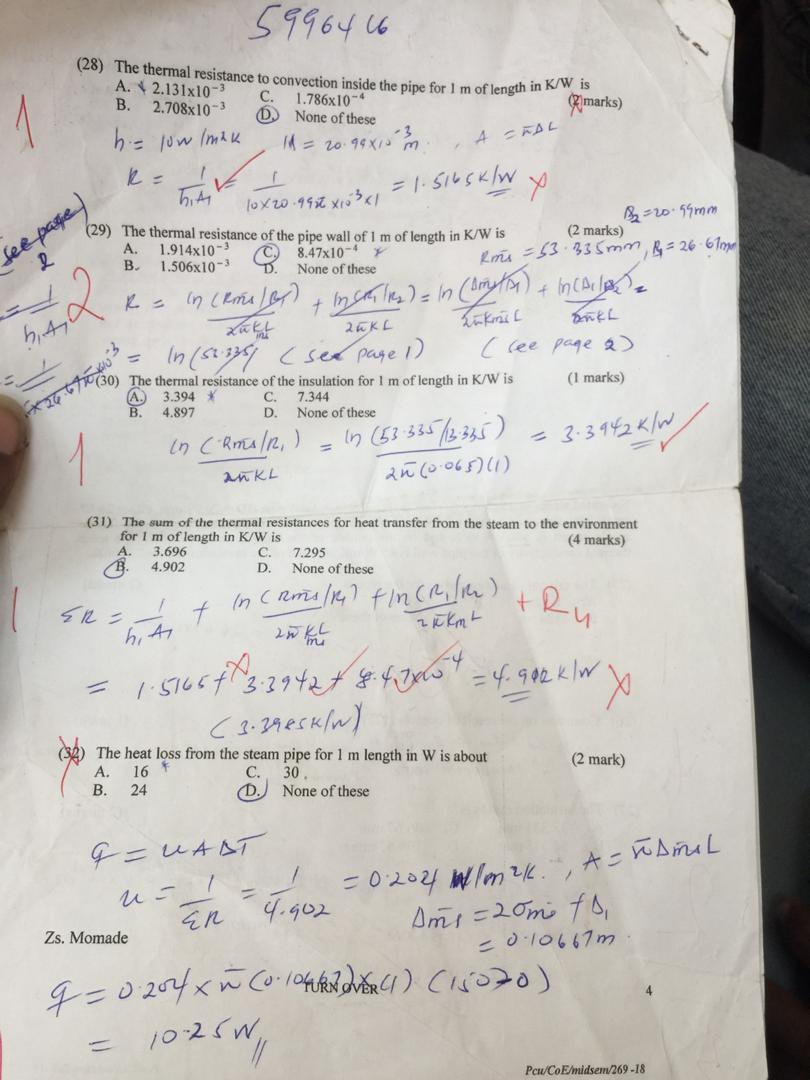 5996416
(28) The thermal resistance to convection inside the pipe for 1 m of length in K/W is
A. 2.131x10⁻³ C. 1.786x10⁻⁴ (2 marks)
B. 2.708x10⁻³ D. None of these
1
h = 10w/m²k
= 20.99x10⁻³m, A = πDL
R = 1/h₁A₁ = 1/10x20.99πx10⁻³x1 = 1.5165K/W
R₂=20.99mm
(29) The thermal resistance of the pipe wall of 1 m of length in K/W is (2 marks)
A. 1.914x10⁻³ C. 8.47x10⁻⁴
B. 1.506x10⁻³ D. None of these
Rins = 53.335mm, R₁ = 26.67mm
(see page 2
= 1/h₁A₁
2
R = ln(Rins/R1)/2πKL + ln(R1/R2)/2πKL = ln(Dins/D1)/2πKinsL + ln(D1/D2)/2πKL =
= ln(53.335/ (see page 1) (see page 2)
x26.67πx10⁻³
(30) The thermal resistance of the insulation for 1 m of length in K/W is (1 marks)
A. 3.394 C. 7.344
B. 4.897 D. None of these
1
ln(Rins/R1)/2πKL = ln(53.335/13.335)/2π(0.065)(1) = 3.3942K/W
(31) The sum of the thermal resistances for heat transfer from the steam to the environment
for 1 m of length in K/W is (4 marks)
A. 3.696 C. 7.295
B. 4.902 D. None of these
1
ΣR = 1/h₁A₁ + ln(Rins/R1)/2πKinsL + ln(R1/R2)/2πKmL + R4
= 1.5165 + 3.3942 + 8.47x10⁻⁴ = 4.902K/W
(3.3985K/W)
(32) The heat loss from the steam pipe for 1 m length in W is about (2 mark)
A. 16 C. 30
B. 24 D. None of these
q = UAΔT
u = 1/ΣR = 1/4.902 = 0.204 W/m²k., A = πDinsL
Dins = 2σins + D1
= 0.10667m
Zs. Momade
q = 0.204 x π(0.10667)x(1) (150-70)
TURN OVER
4
= 10.25W
Pcu/CoE/midsem/269 -18